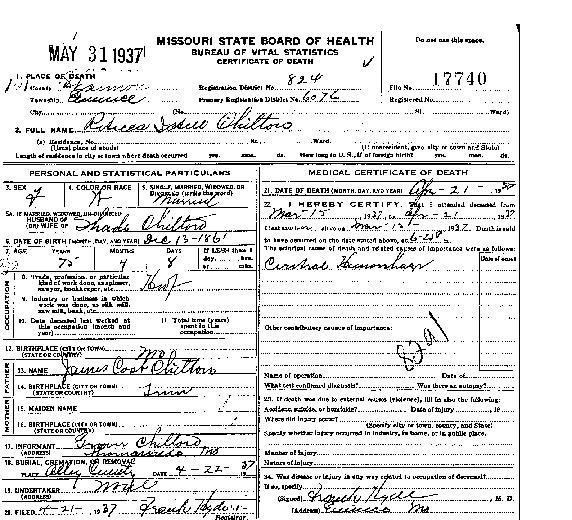 MAY 31 1937
MISSOURI STATE BOARD OF HEALTH
BUREAU OF VITAL STATISTICS
CERTIFICATE OF DEATH
Do not use this space.
1. PLACE OF DEATH
County
Registration District No. 824
File No. 17740
Township
Primary Registration District No. 6076
Registered No.
City (No. St. Ward)
2. FULL NAME Chilton
(a) Residence, No. St. Ward.
(Usual place of abode) (If nonresident, give city or town and State)
Length of residence in city or town where death occurred yrs. mos. ds. How long in U. S., if of foreign birth? yrs. mos. ds.
PERSONAL AND STATISTICAL PARTICULARS
3. SEX 4. COLOR OR RACE 5. SINGLE, MARRIED, WIDOWED, OR DIVORCED (write the word)
W Married
5A. IF MARRIED, WIDOWED, OR DIVORCED
HUSBAND OF
(OR) WIFE OF Shade Chilton
6. DATE OF BIRTH (MONTH, DAY, AND YEAR) Dec 13-1861
7. AGE YEARS MONTHS DAYS If LESS than 1
75 4 8 day, hrs.
or min.
OCCUPATION
8. Trade, profession, or particular kind of work done, as spinner, sawyer, bookkeeper, etc.
9. Industry or business in which work was done, as silk mill, saw mill, bank, etc.
10. Date deceased last worked at this occupation (month and year)
11. Total time (years) spent in this occupation
12. BIRTHPLACE (CITY OR TOWN) Mo
(STATE OR COUNTRY)
FATHER
13. NAME James Chilton
14. BIRTHPLACE (CITY OR TOWN) Tenn
(STATE OR COUNTRY)
MOTHER
15. MAIDEN NAME
16. BIRTHPLACE (CITY OR TOWN)
(STATE OR COUNTRY)
17. INFORMANT Chilton
(ADDRESS) Mo
18. BURIAL, CREMATION, OR REMOVAL
PLACE DATE 4-22- 37
19. UNDERTAKER
(ADDRESS)
20. FILED 4-21- 1937 Frank Hyde
Registrar
MEDICAL CERTIFICATE OF DEATH
21. DATE OF DEATH (MONTH, DAY, AND YEAR) Apr - 21 - 1937
22. I HEREBY CERTIFY, That I attended deceased from
Mar - 15 1937, to Apr - 21 1937
I last saw alive on Mar 1937. Death is said
to have occurred on the date stated above, at
The principal cause of death and related causes of importance were as follows:
Date of onset
Hemorrhage
Other contributory causes of importance:
Name of operation Date of
What test confirmed diagnosis? Was there an autopsy?
23. If death was due to external causes (violence), fill in also the following:
Accident, suicide, or homicide? Date of injury 19
Where did injury occur?
(Specify city or town, county, and State)
Specify whether injury occurred in industry, in home, or in public place.
Manner of injury
Nature of injury
24. Was disease or injury in any way related to occupation of deceased?
If so, specify
(Signed) Frank Hyde, M. D.
(Address) Mo